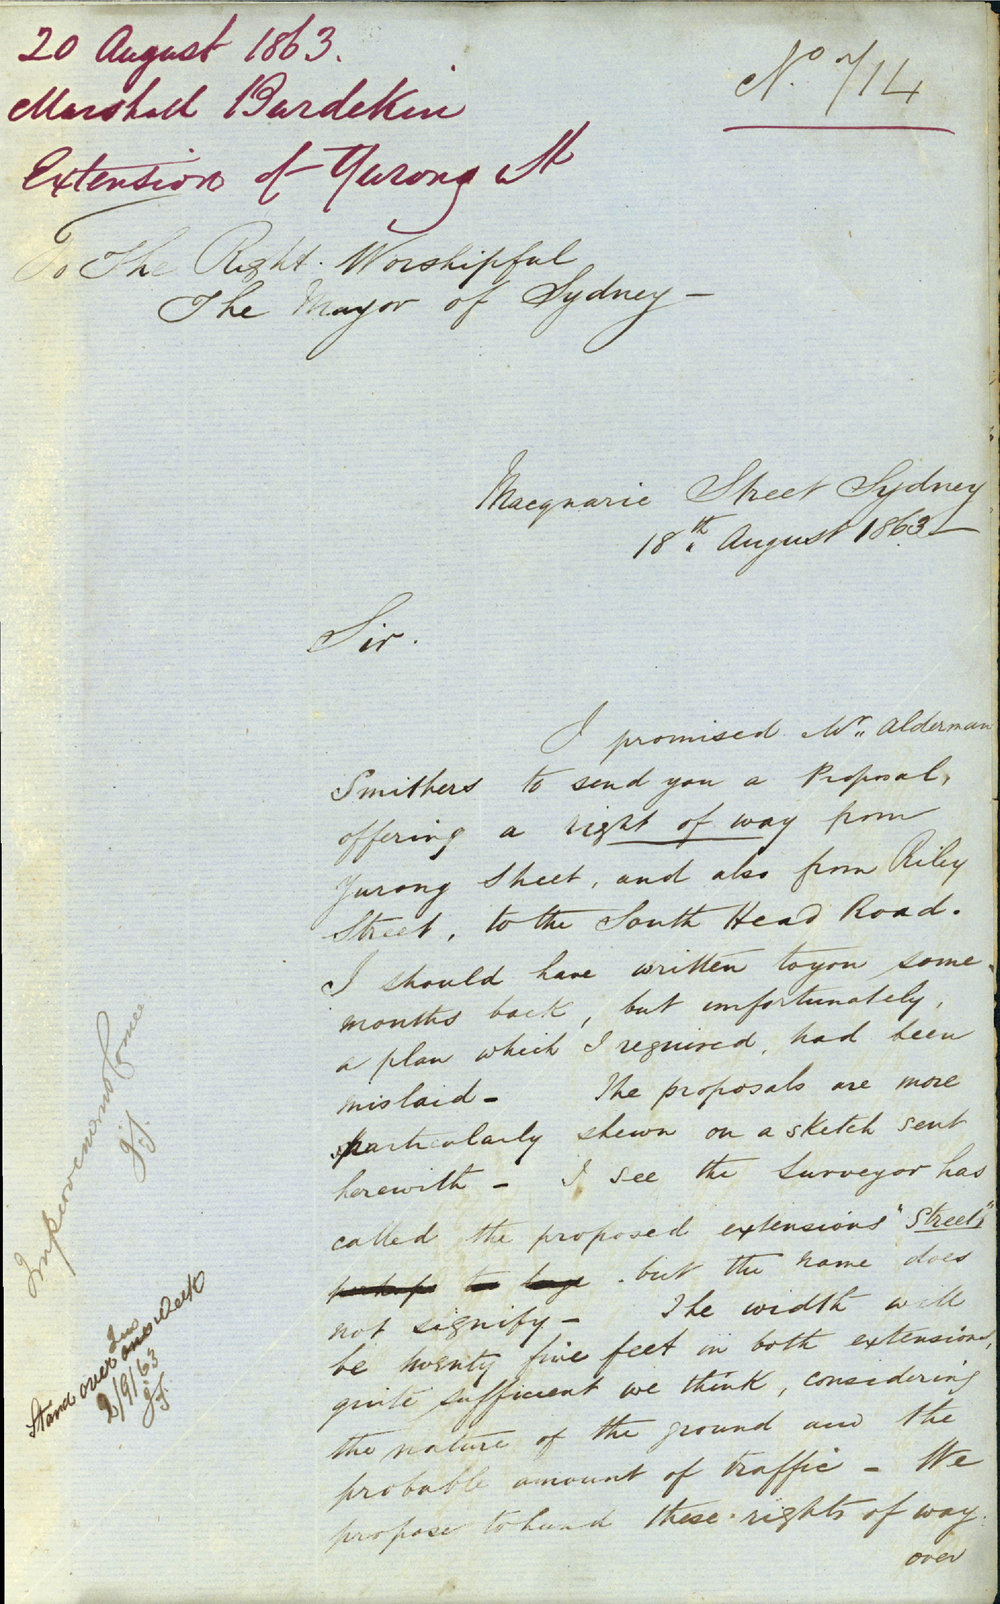 20 August 1863.
Marshall Burdekin
Extension of Yurong St
No 714
To The Right Worshipful
The Mayor of Sydney —
Macquarie Street Sydney
18th August 1863 —
Sir.
I promised Mr. Alderman
Smithers to send you a Proposal,
offering a right of way from
Yurong Street, and also from Riley
Street, to the South Head Road.
I should have written to you some
months back, but unfortunately,
a plan which I required, had been
mislaid — The proposals are more
particularly shewn on a sketch sent
herewith — I see the Surveyor has
called the proposed extensions "Streets"
but the name does
not signify — The width will
be twenty five feet in both extensions,
quite sufficient we think, considering
the nature of the ground and the
probable amount of traffic — We
propose to hand these rights of way
over
Improvement Comee
J.S.
Stand over one Week
2/9/63
J.S.